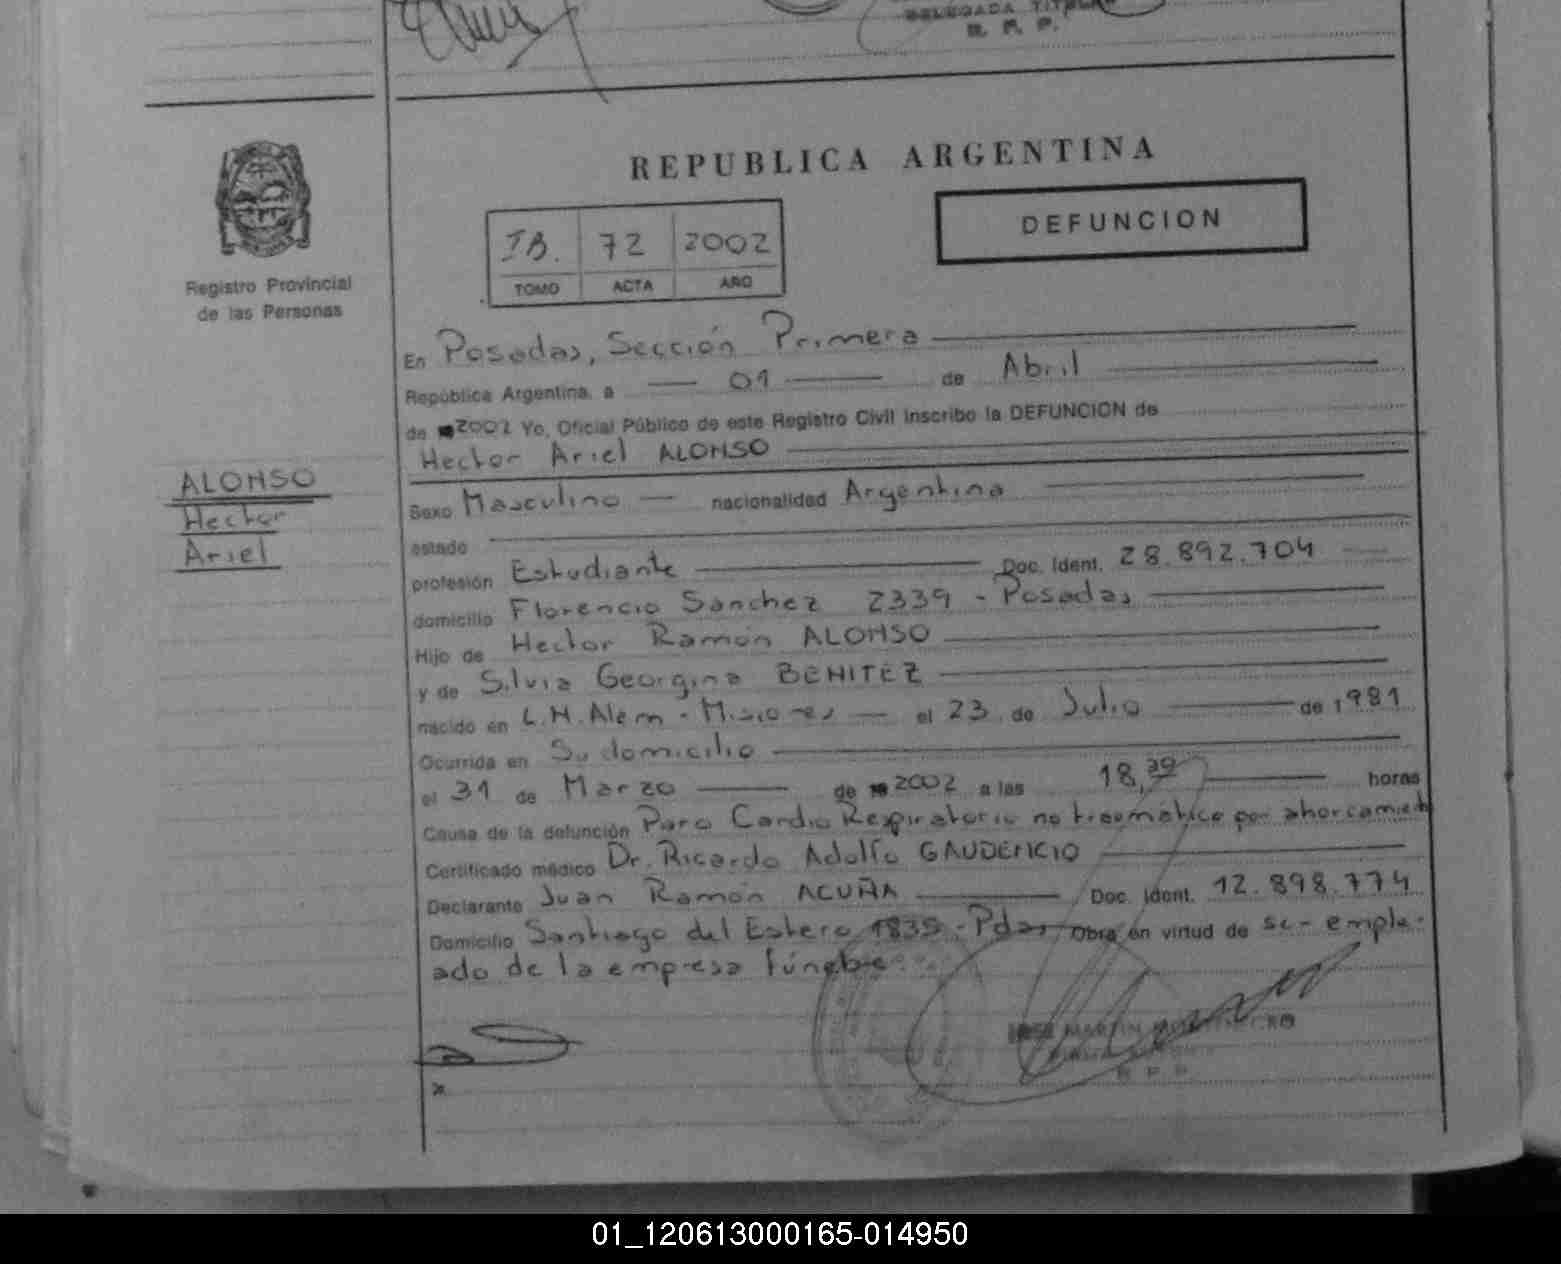 DELEGADA TITULAR
R. P. P.
REPUBLICA ARGENTINA
DEFUNCION
IB. 72 2002
TOMO ACTA AÑO
Registro Provincial
de las Personas
En Posadas, Sección Primera
República Argentina, a 01 de Abril
de 2002 Yo, Oficial Público de este Registro Civil inscribo la DEFUNCION de
Hector Ariel ALONSO
ALONSO
Hector
Ariel
Sexo Masculino nacionalidad Argentina
estado
profesión Estudiante Doc. Ident. 28.892.704
domicilio Florencio Sanchez 2339 - Posadas
Hijo de Hector Ramón ALONSO
y de Silvia Georgina BENITEZ
nacido en L.N.Alem - Misiones el 23 de Julio de 1981
Ocurrida en Su domicilio
el 31 de Marzo de 2002 a las 18,30 horas
Causa de la defunción Paro Cardio Respiratorio no traumático por ahorcamient
Certificado médico Dr. Ricardo Adolfo GAUDENCIO
Declarante Juan Ramón ACUÑA Doc. Ident. 12.898.774
Domicilio Santiago del Estero 1835 - Pdas Obra en virtud de se- emple-
ado de la empresa fúnebre.
R. P. P.
01_120613000165-014950